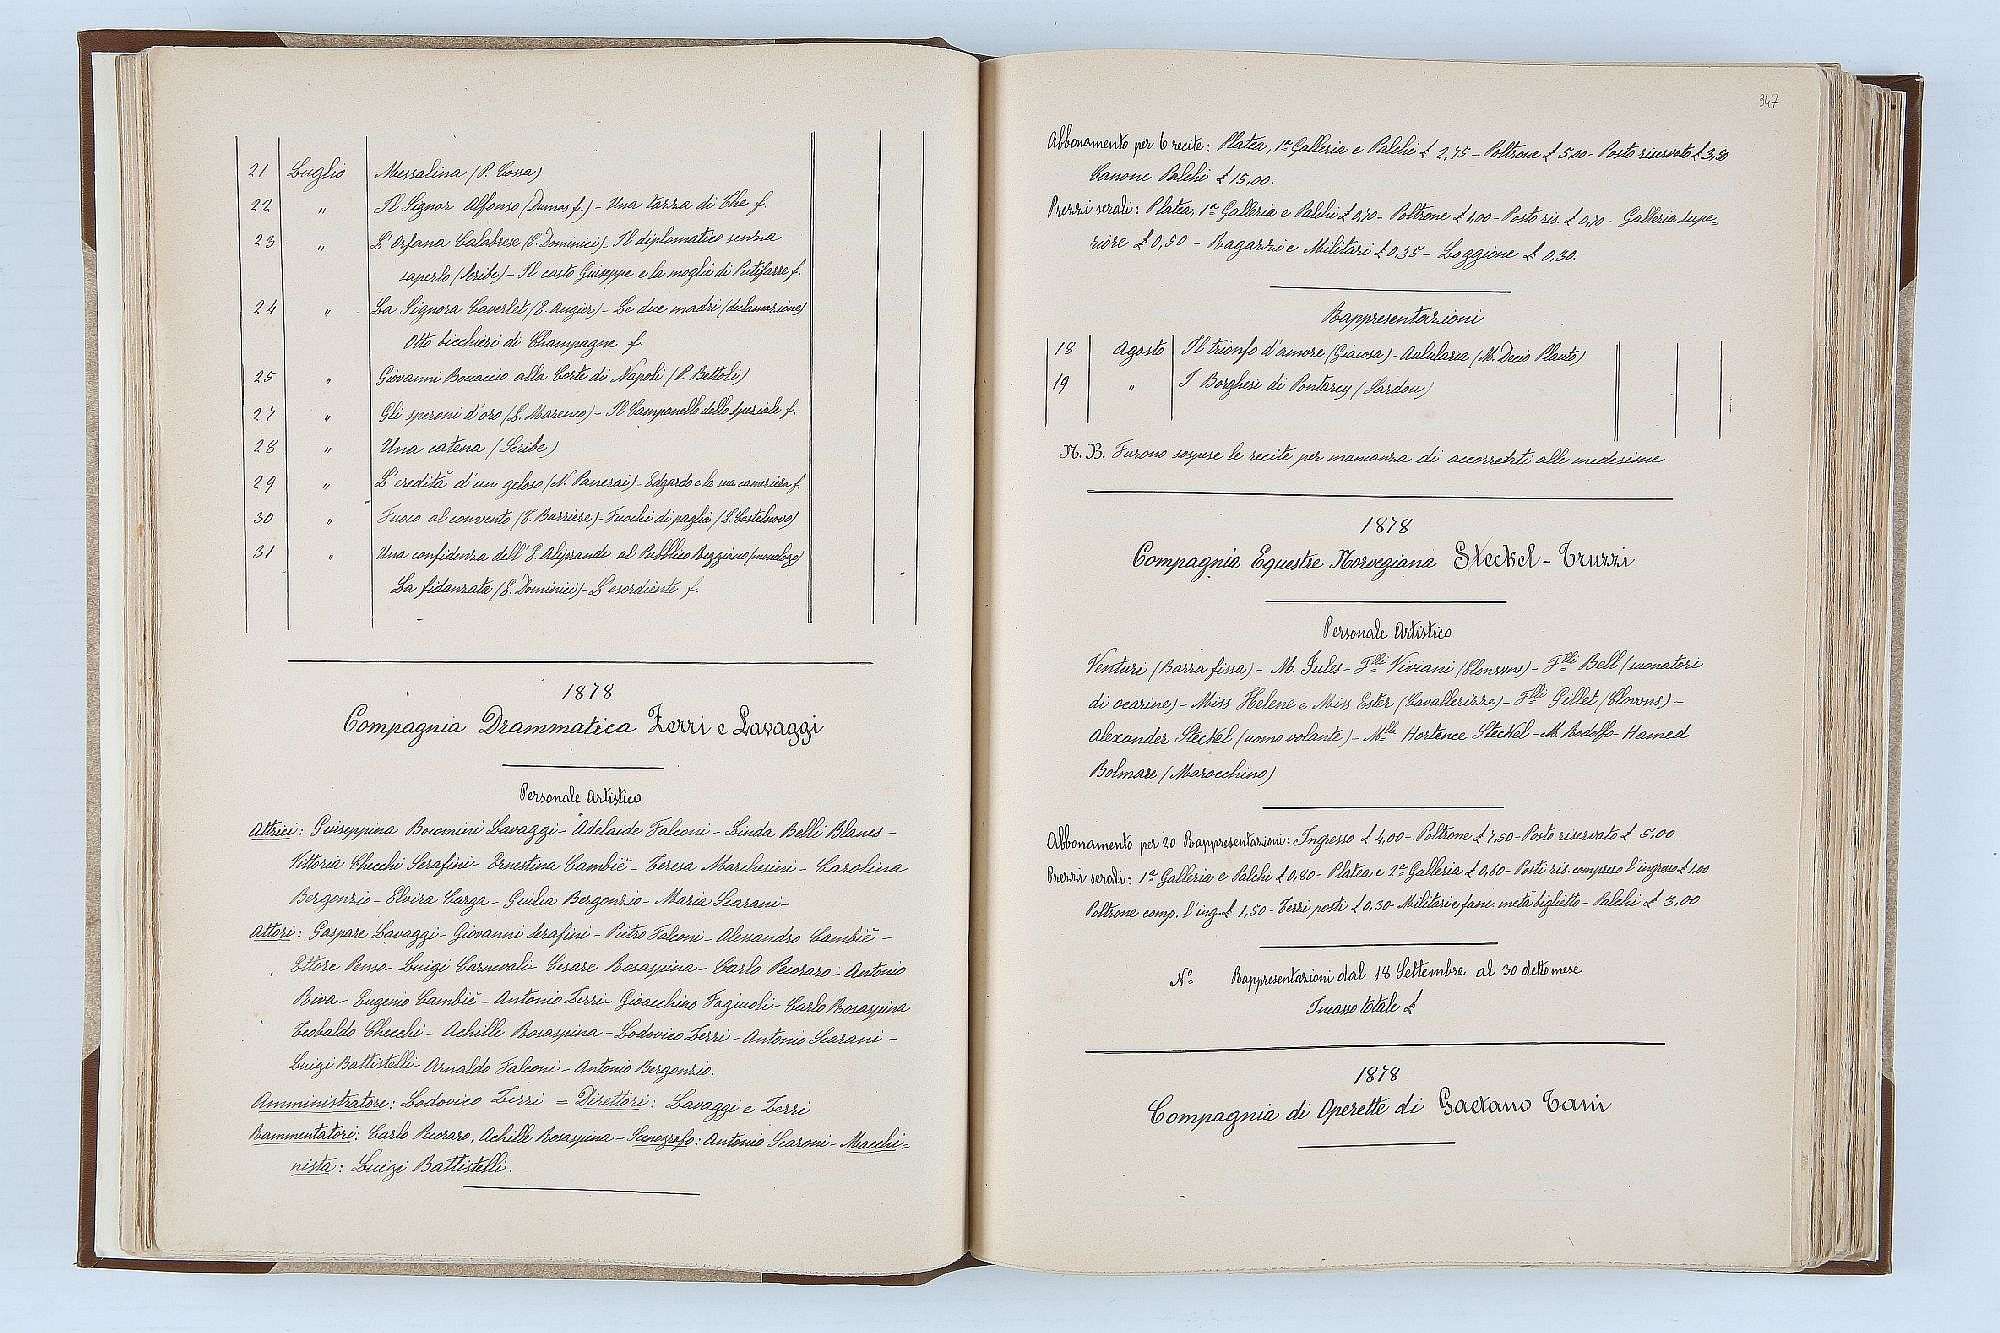 21 Luglio Messalina (P. Cossa)
22 " Il Signor Alfonso (Dumas f.) - Una tazza di the f.
23 " L'Orfana Calabrese (E. Dominici) - Il diplomatico senza
saperlo (Scribe) - Il casto Giuseppe e la moglie di Putifarre f.
24 " La Signora Caverlet (E. Augier) - Le due madri (declamazione)
Otto bicchieri di Champagne f.
25 " Giovanni Boccaccio alla Corte di Napoli (P. Bettoli)
27 " Gli speroni d'oro (L. Marenco) - Il Campanello dello speziale f.
28 " Una catena (Scribe)
29 " L'eredità d'un geloso (N. Panerai) - Edgardo e la sua cameriera f.
30 " Fuoco al convento (T. Barriere) - Fuochi di paglia (L. Castelnovo)
31 " Una confidenza dell' E. Aliprandi al Pubblico Reggiano (monologo)
La fidanzata (E. Dominici) - L'esordiente f.
1878
Compagnia Drammatica Zerri e Lavaggi
Personale Artistico
Attrici: Guiseppina Bocomini Lavaggi - Adelaide Falconi - Linda Belli Blanes -
Vittoria Checchi Serafini - Ernestina Cambiè - Teresa Marchesini - Carolina
Bergonzio - Elvira Carga - Giulia Bergonzio - Maria Scarani -
Attori: Gaspare Lavaggi - Giovanni Serafini - Pietro Falconi - Alessandro Cambiè -
Ettore Penso - Luigi Carnevali - Cesare Rosaspina - Carlo Pecoraro - Antonio
Riva - Eugenio Cambiè - Antonio Zerri - Gioacchino Fagiuoli - Carlo Rosaspina
Teobaldo Checchi - Achille Rosaspina - Lodovico Zerri - Antonio Scarani -
Luigi Battistelli - Arnaldo Falconi - Antonio Bergonzio.
Amministratore: Lodovico Zerri = Direttori: Lavaggi e Zerri
Rammentatori: Carlo Pecoraro, Achille Rosaspina - Scenografo: Antonio Scaroni - Macchi-
nista: Luigi Battistelli.
347
Abbonamento per 6 recite: Platea, 1ª Galleria e Palchi £ 2,75 - Poltrone £ 5,00 - Posto riservato £ 3,80
Canone Palchi £ 15,00.
Prezzi serali: Platea, 1ª Galleria e Palchi £ 0,70 - Poltrone £ 1,00 - Posto ris. £ 0,70 - Galleria supe-
riore £ 0,50 - Ragazzi e Militari £ 0,35 - Loggione £ 0,30.
Rappresentazioni
18 Agosto Il trionfo d'amore (Giacosa) - Aulularia (M. Decio Plauto)
19 " I Borghesi di Pontarcy (Sardou)
N. B. Furono sospese le recite per mamanza di accorrenti alle medesime
1878
Compagnia Equestre Norvegiana Steckel - Truzzi
Personale Artistico
Venturi (Barra fissa) - M. Jules - F.lli Viviani (Clonwns) - F.lli Bell (suonatori
di ocarine) - Miss Helene e Miss Ester (Cavallerizze) - F.lli Gillet (Clowns) -
Alexander Steckel (uomo volante) - M.lle Hortence Steckel - M. Rodolfo - Hamed
Bolmare (Marocchino)
Abbonamento per 20 Rappresentazioni: Ingresso £ 4,00 - Poltrone £ 7,50 - Posto riservato £ 5,00
Prezzi serali: 1ª Galleria e Palchi £ 0,80 - Platea e 2ª Galleria £ 0,60 - Posti ris. compreso l'ingresso £ 1,00
Poltrone comp. l'ing. £ 1,50 - Terzi posti £ 0,30 - Militari e fanc. metà biglietto - Palchi £ 3,00
N.º Rappresentazioni dal 18 Settembre al 30 detto mese
Incasso totale £
1878
Compagnia di Operette di Gaetano Tani